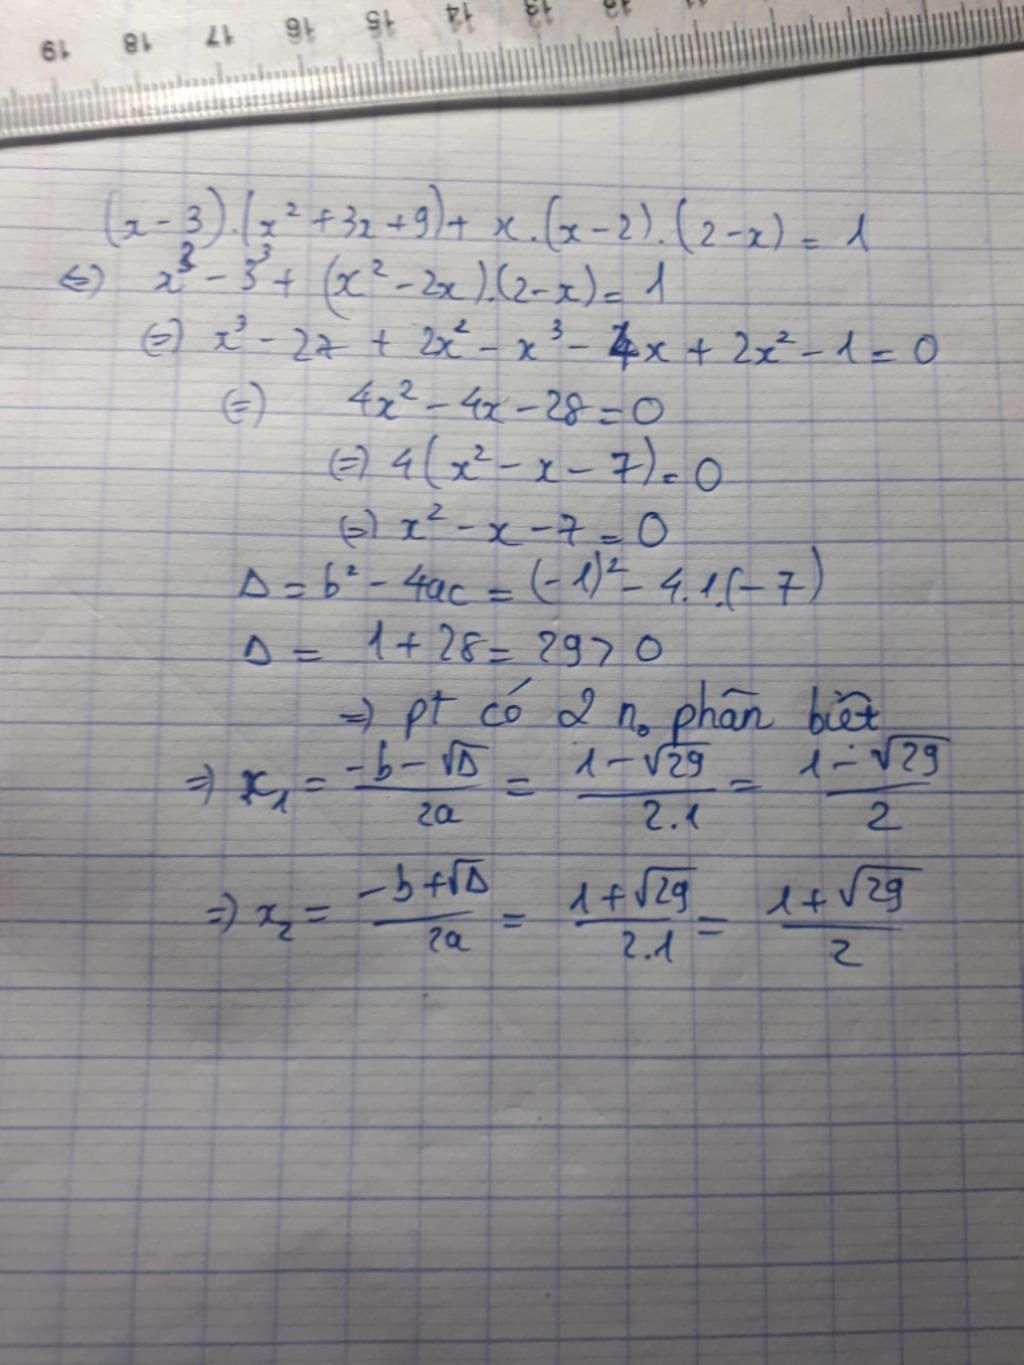 19 18 17 16 15 14 13 12 11
(x - 3).(x² + 3x + 9) + x.(x - 2).(2 - x) = 1
⇔) x³ - 3³ + (x² - 2x).(2 - x) = 1
(=) x³ - 27 + 2x² - x³ - 4x + 2x² - 1 = 0
(=) 4x² - 4x - 28 = 0
(=) 4(x² - x - 7) = 0
(=) x² - x - 7 = 0
Δ = b² - 4ac = (-1)² - 4.1.(-7)
Δ = 1 + 28 = 29 > 0
=> pt có 2 n₀ phân biệt
=> x₁ = (-b - √Δ)/2a = (1 - √29)/2.1 = (1 - √29)/2
=> x₂ = (-b + √Δ)/2a = (1 + √29)/2.1 = (1 + √29)/2